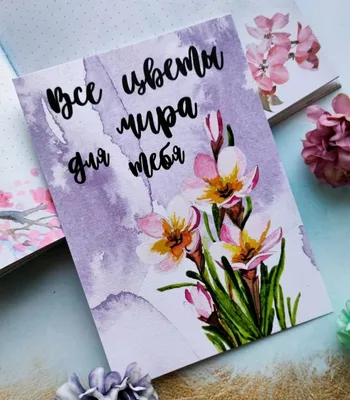 Все цветы
мира
для тебя